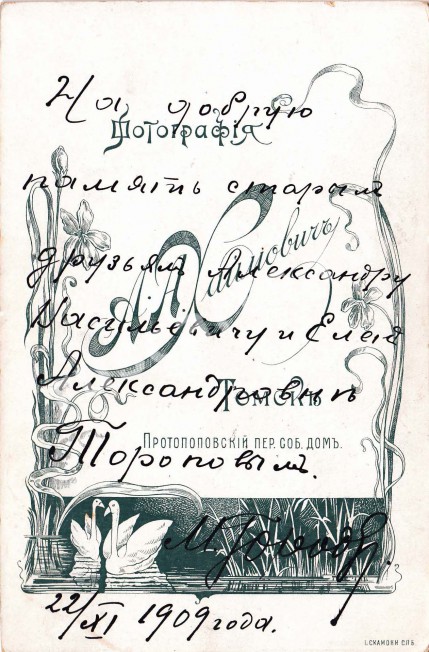 На добрую
Фотографія
память старымъ
друзьямъ Александру
А. А. Хаймовичъ
Васильевичу и Елене
Александровнѣ
Томскъ
Протопоповскій пер. соб. домъ.
Тороповымъ.
22/XI 1909 года.
І. СКАМОНИ СПБ.